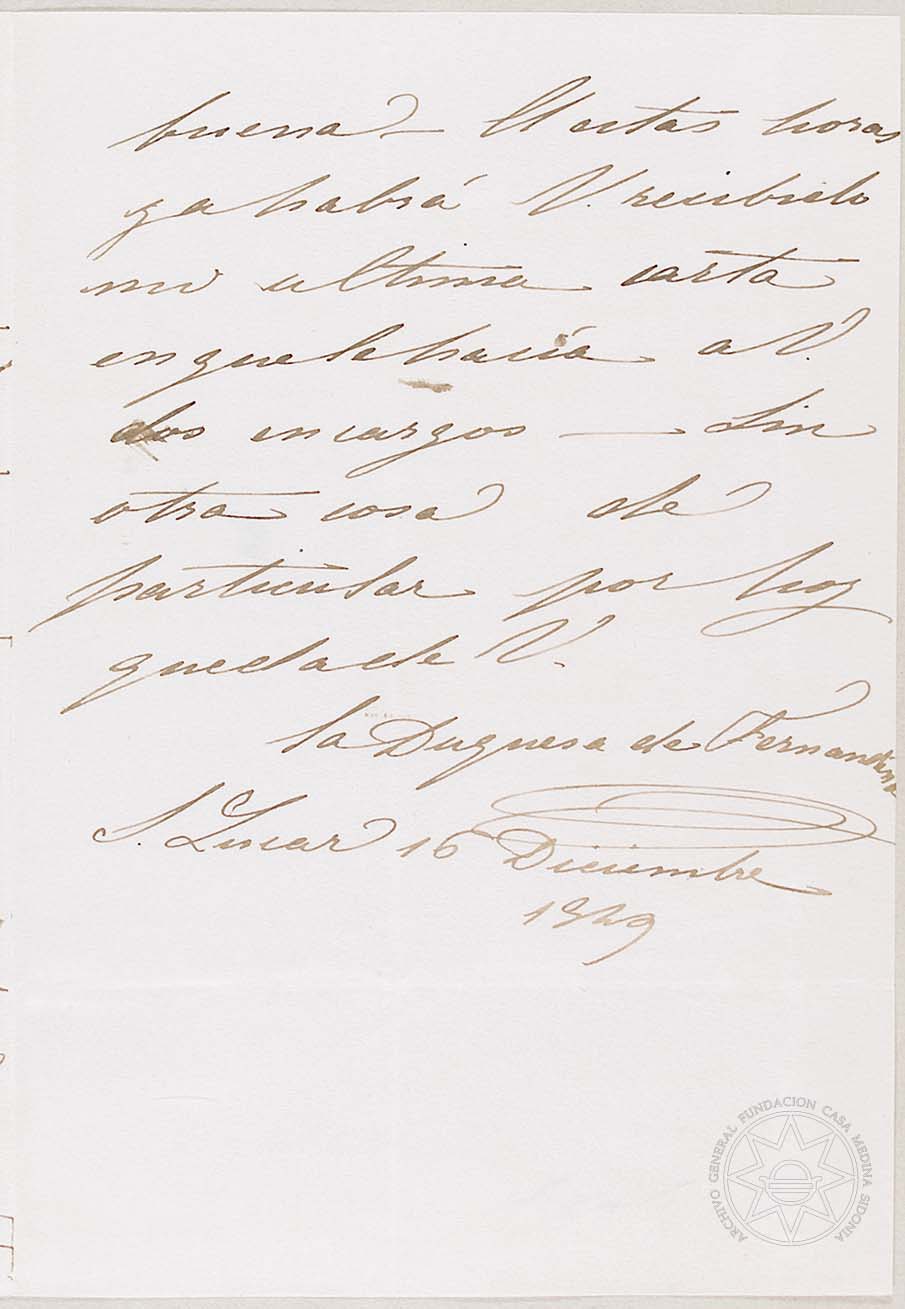 buena – A estas horas
ya habrá V. recibido
mi ultima carta
en que le hacía a V.
dos encargos — Sin
otra cosa de
particular por hoy
queda de V.
la Duquesa de Fernandina
S. Lucar 16 Diciembre
1849
ARCHIVO GENERAL FUNDACION CASA MEDINA SIDONIA